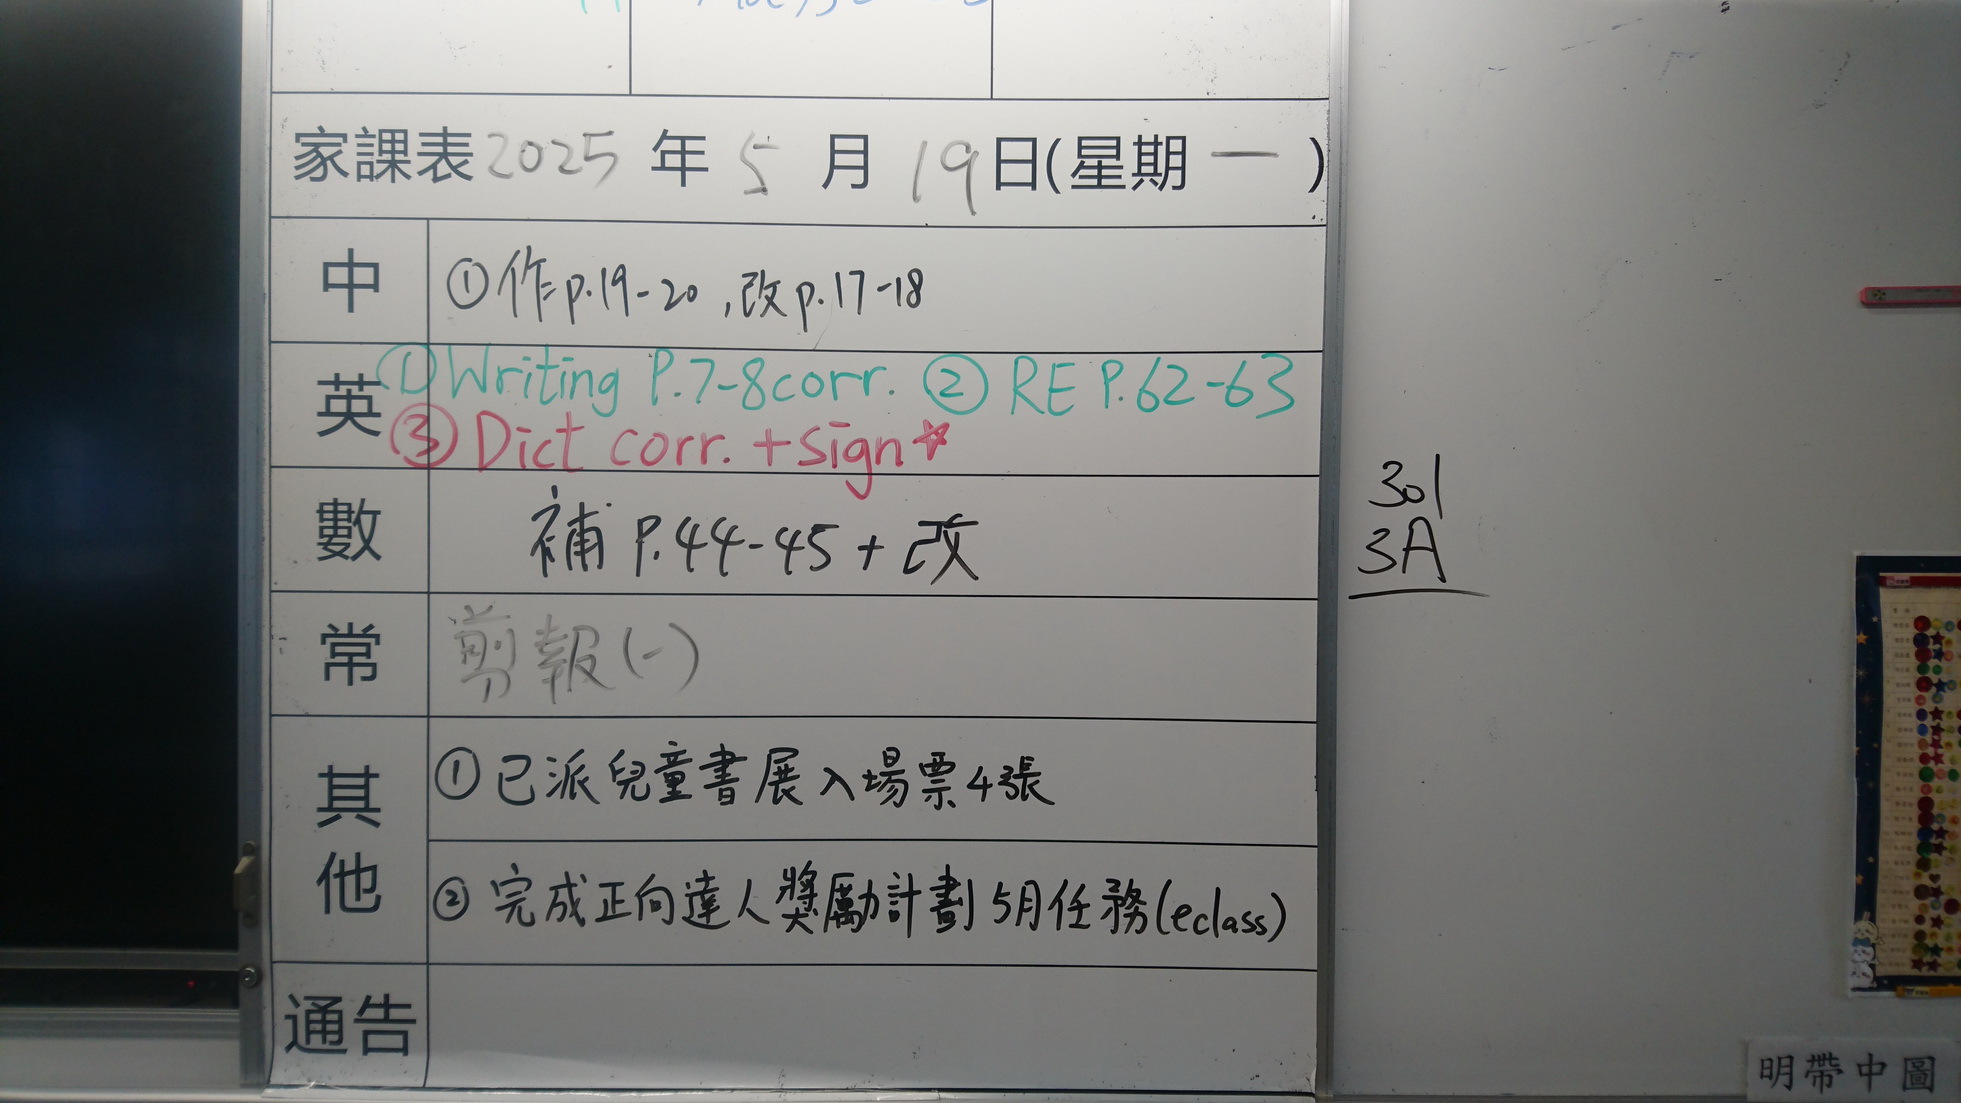 家課表 2025 年 5 月 19 日(星期 一 )
中 ①作p.19-20,改p.17-18
英 ①Writing P.7-8corr. ② RE P.62-63
③Dict corr. +sign☆
數 補 P.44-45 + 改
常 剪報(一)
其他 ①已派兒童書展入場票4張
②完成正向達人獎勵計劃5月任務(eclass)
通告
301
3A
明帶中圖